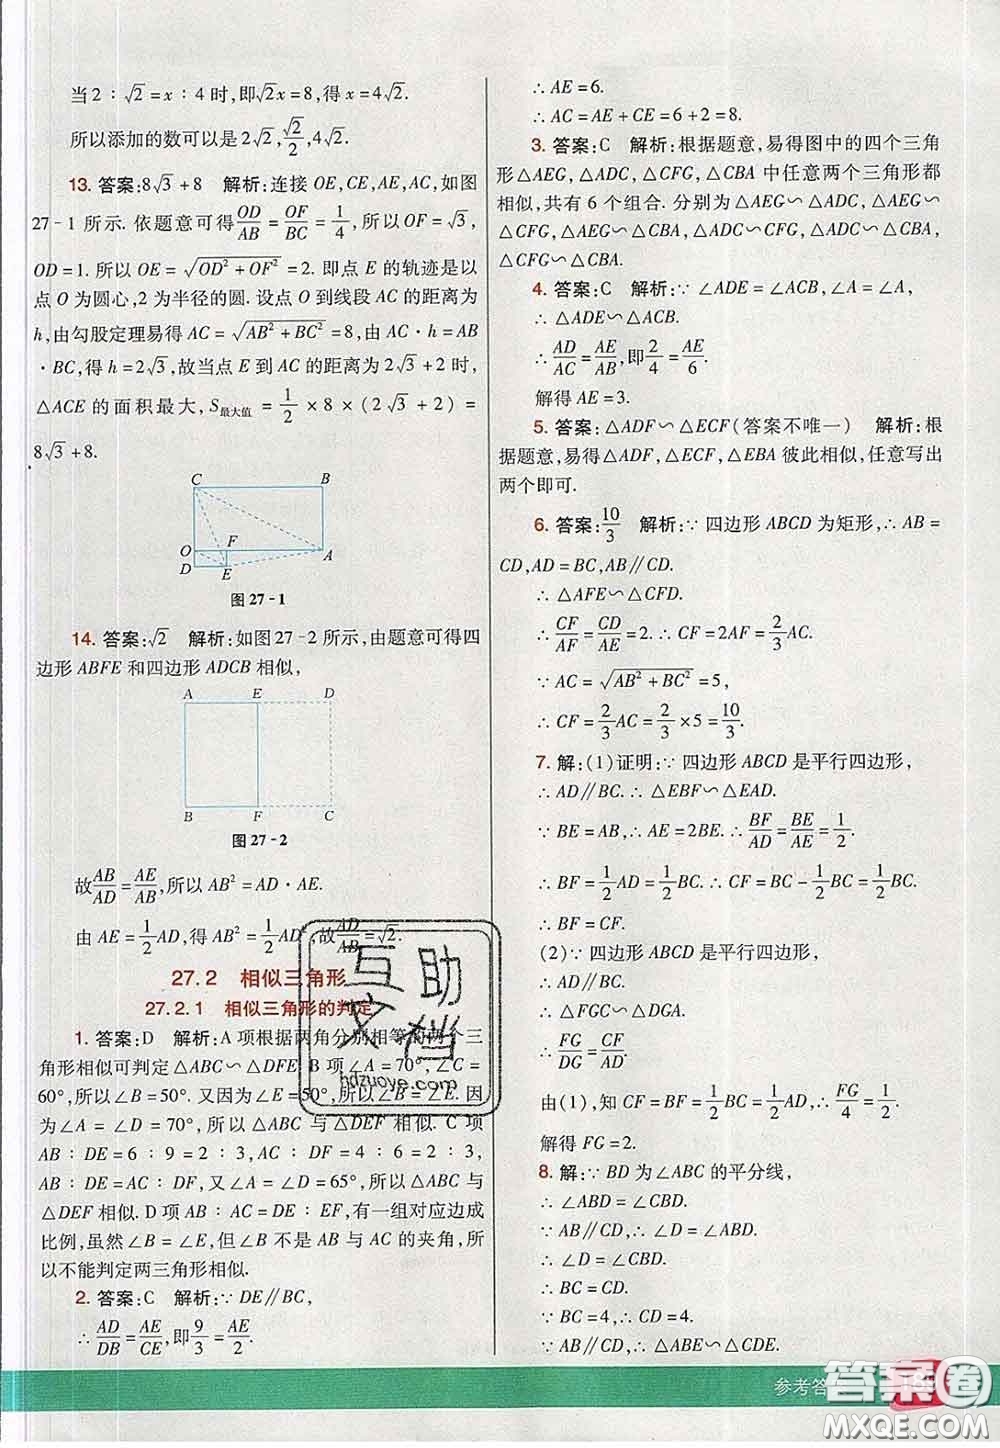 当2∶√2=x∶4时,即√2x=8,得x=4√2.
所以添加的数可以是2√2,√2/2,4√2.
13. 答案:8√3+8 解析:连接OE,CE,AE,AC,如图
27-1所示. 依题意可得OD/AB=OF/BC=1/4,所以OF=√3,
OD=1. 所以OE=√(OD²+OF²)=2. 即点E的轨迹是以
点O为圆心,2为半径的圆. 设点O到线段AC的距离为
h,由勾股定理易得AC=√(AB²+BC²)=8,由AC·h=AB
·BC,得h=2√3. 故当点E到AC的距离为2√3+2时,
△ACE的面积最大,S最大值=1/2×8×(2√3+2)=
8√3+8.
C B
O F A
D E
图27-1
14. 答案:√2 解析:如图27-2所示,由题意可得四
边形ABFE和四边形ADCB相似,
A E D
B F C
图27-2
故AB/AD=AE/AB,所以AB²=AD·AE.
由AE=1/2AD,得AB²=1/2AD²,故AD/AB=√2.
27.2 相似三角形
27.2.1 相似三角形的判定
1. 答案:D 解析:A项根据两角分别相等的两个三
角形相似可判定△ABC∽△DFE. B项∠A=70°,∠C=
60°,所以∠B=50°. 又因为∠E=50°,所以∠B=∠E. 因
为∠A=∠D=70°,所以△ABC与△DEF相似. C项
AB∶DE=6∶9=2∶3,AC∶DF=4∶6=2∶3,
AB∶DE=AC∶DF. 因为∠A=∠D=65°,所以△ABC与
△DEF相似. D项AB∶AC=DE∶EF,有一组对应边成
比例,虽然∠B=∠E,但∠B不是AB与AC的夹角,所
以不能判定两三角形相似.
2. 答案:C 解析:∵DE∥BC,
∴AD/DB=AE/CE,即9/3=AE/2.
∴AE=6.
∴AC=AE+CE=6+2=8.
3. 答案:C 解析:根据题意,易得图中的四个三角
形△AEG,△ADC,△CFG,△CBA中任意两个三角形都
相似,共有6个组合. 分别为△AEG∽△ADC,△AEG∽
△CFG,△AEG∽△CBA,△ADC∽△CFG,△ADC∽△CBA,
△CFG∽△CBA.
4. 答案:C 解析:∵∠ADE=∠ACB,∠A=∠A,
∴△ADE∽△ACB.
∴AD/AC=AE/AB,即2/4=AE/6.
解得AE=3.
5. 答案:△ADF∽△ECF(答案不唯一) 解析:根
据题意,易得△ADF,△ECF,△EBA彼此相似,任意写出
两个即可.
6. 答案:10/3 解析:∵四边形ABCD为矩形,∴AB=
CD,AD=BC,AB∥CD.
∴△AFE∽△CFD.
∴CF/AF=CD/AE=2. ∴CF=2AF=2/3AC.
∵AC=√(AB²+BC²)=5,
∴CF=2/3AC=2/3×5=10/3.
7. 解:(1)证明:∵四边形ABCD是平行四边形,
∴AD∥BC. ∴△EBF∽△EAD.
∵BE=AB,∴AE=2BE. ∴BF/AD=BE/AE=1/2.
∴BF=1/2AD=1/2BC. ∴CF=BC-1/2BC=1/2BC.
∴BF=CF.
(2)∵四边形ABCD是平行四边形,
∴AD∥CF.
∴△FGC∽△DGA.
∴FG/DG=CF/AD.
由(1),知CF=BF=1/2BC=1/2AD,∴FG/4=1/2.
解得FG=2.
8. 解:∵BD为∠ABC的平分线,
∴∠ABD=∠CBD.
∵AB∥CD,∴∠D=∠ABD.
∴∠D=∠CBD.
∴BC=CD.
∵BC=4,∴CD=4.
∵AB∥CD,∴△ABE∽△CDE.
互助文档
hdzuoye.com
参考答
答案圈
MXQE.COM